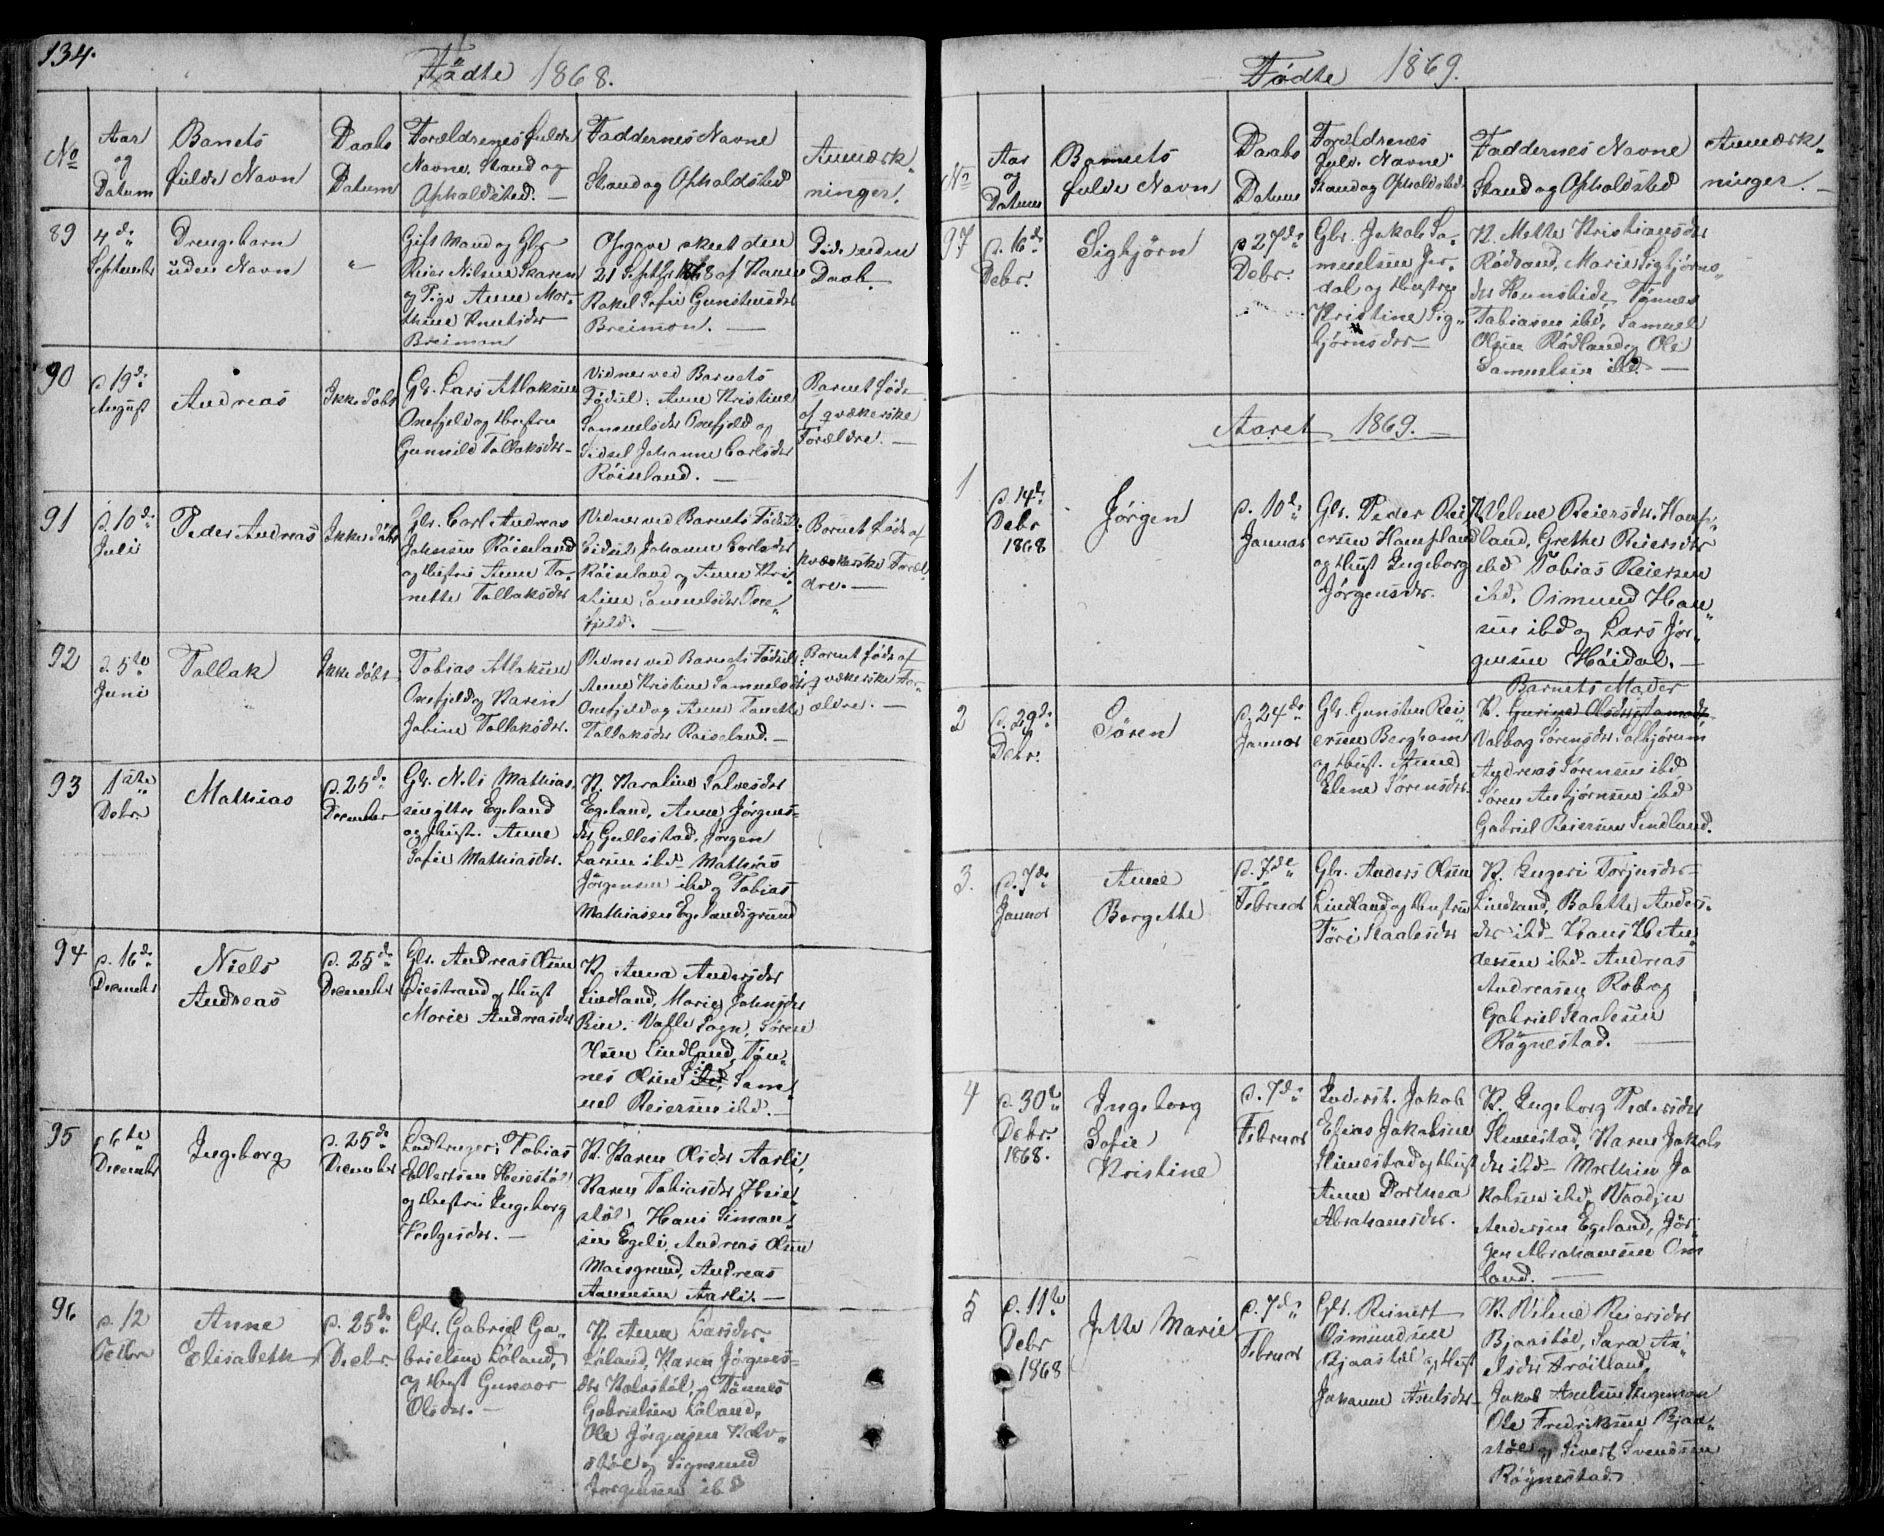 134.
Födte 1868.
No
Aar
og
Datum
Barnets
fulde Navn
Daabs
Datum
Forældrenes fulde
Navne, Stand og
Opholdsted. —
Faddernes Navne
Stand og Opholdsted
Anmærk-
ninger.
89
4de
September
Drengebarn
uden Navn
"
Gift Mand og Gbr
Reier Nilsen Skaren
og Pige Anne Mar-
thine Knutsdr
Breimon
Opgave skeet den
21 Septbr 1868 af Kone
Rakel Sofie Gunstensdr
Breimon. —
Død uden
Daab.
90
d. 19de
August
Andreas
Ikke døbt
Gbr. Lars Atlaksen
Onefjeld og Hustru
Gunnild Tallaksdr. —
Vidner ved Barnets
Fødsel: Anne Kristine
Samuelsdr Onefjeld og
Sidsel Johanne Carlsdr
Röiseland. —
Barnet født
af qvækerske
Forældre. —
91
d. 10de
Juli
Peder Andreas
Ikke døbt
Gbr. Carl Andreas
Johnsen Röiseland
og Hustru Anne To-
nette Tallaksdr
Vidner ved Barnets Fødsel:
Sidsel Johanne Carlsdr
Röiseland og Anne Kri-
stine Samuelsdr One-
fjeld. —
Barnet født af
kvækerske Foræl-
dre. —
92
d. 5te
Juni
Tallak
Ikke døbt
Tobias Atlaksen
Onefjeld og Karen
Jobine Tallaksdr.
Vidner ved Barnets Fødsel:
Anne Kristine Samuelsdr
Onefjeld og Anne Tonette
Tallaksdr Röiseland. —
Barnet født af
qvækerske For-
ældre. —
93
1ste
Debr
Mathias
d. 25de
December
Gbr. Nels Mathias-
sen yttre Egeland
og Hust. Anne
Sofie Mathiasdr.
K. Karoline Salvesdr
Egeland, Anne Jørgens-
dr Gullestad, Jørgen
Larsen ibd. Mathias
Jørgensen ibd og Tobias
Mathiasen Egelandsgrund
94
d. 16de
December
Niels
Andreas
d. 25de
December
Gbr. Andreas Olsen
Øiestrand og Hust
Marie Andreasdr
K. Anna Andersdr
Lindland, Marie Johnsdr
Bue. Valle Sogn, Søren
Hsen Lindland, Tøn-
nes Olsen ibd, Sam-
uel Reiersen ibd. —
95
d 6te
December
Ingeborg
d. 25de
December
Landbruger Tobias
Ellertsen Heiestøl
og Hustru Ingeborg
Helgesdr. —
K. Karen Olsdr Aarli,
Karen Tobiasdr Heie-
støl, Hans Simon-
sen Egeli, Andreas Olsen
Moisgrund, Andreas
Aanensen Aarli. —
96
d. 12
Octbr
Anne
Elisabeth
d. 25de
Decbr.
Gbr. Gabriel Ga-
brielsen Løland,
og Hust Gunvor
Olsdr. —
K. Anne Larsdr
Løland, Karen Jørgens-
dr Kolvstøl, Tønnes
Gabrielsen Løland,
Ole Jørgensen Kolv-
støl og Sigmund
Jørgensen ibd
Födte 1869.
No
Aar
og
Datum
Barnets
fulde Navn
Daabs
Datum
Forældrenes
fuld. Navne
Stand og Opholdsted
Faddernes Navne
Stand og Opholdsted
Anmærk-
ninger. —
97
d. 16de
Debr.
Sigbjørn
d 27de
Debr.
Gbr. Jakob Sa-
muelsen Jer-
dal og Hustru
Kristine Sig-
bjørnsdr —
K. Mette Kristiansdr
Rødland, Marie Sigbjørns-
dr Hunsbedt, Tønnes
Tobiasen ibd, Samuel
Olsen Rødland og Ole
Samuelsen ibd. —
Aaret 1869. —
1
d. 14de
Debr
1868
Jørgen
d. 10de
Januar
Gbr. Peder Rei-
ersen Hompland
og Hust Ingeborg
Jørgensdr.
K. Velene Reiersdr. Homp-
land, Grethe Reiersdr
ibd Tobias Reiersen
ibd. Osmund Han-
sen ibd og Lars Jør-
gensen Høidal. —
2
d. 29de
Debr.
Søren
d. 24de
Januar
Gbr. Gunsten Rei-
ersen Bergham
og Hust. Anne
Elene Sørensdr.
Barnets Moder
K.
Valborg Sørensdr. Solbjørum
Andreas Sørensen ibd
Søren Asbjørnsen ibd
Gabriel Reiersen Sindland.
3.
d. 7de
Januar
Anne
Bergette
d. 7de
Februar
Gbr. Anders Olsen
Lindland og Hustru
Töri Staalesdr
K. Ingeri Torjusdr
Lindland, Bolette Anders-
dr ibd. Hans H. An-
dersen ibd. Andreas
Andreasen Rob og
Gabriel Staalesen
Røgnestad. —
4
d. 30te
Debr.
1868.
Ingeborg
Sofie
Kristine
d. 7de
Februar
Inderst. Jakob
Elias Jakobsen
Himestad og Hust
Anne Dorthea
Abrahamsdr.
K. Ingeborg Pedersdr
Himestad, Karen Jakobs
dr ibd. Mathias Ja
kobsen ibd,
Andersen Egeland, Jör-
gen Abrahamsen Om
land. —
5
d. 11te
Debr
1868
Jette Marie
d. 7de
Februar
Gbr. Reinert
Osmundsen
Bjaastøl og Hust
Johanne Axelsdr —
K. Vilene Reiersdr
Bjaastøl, Sara Ax-
elsdr Trøitland,
Jakob Axelsen Stegemon
Ole Fredriksen Bjaa-
støl og Sivert Svendsen
Røgnestad.